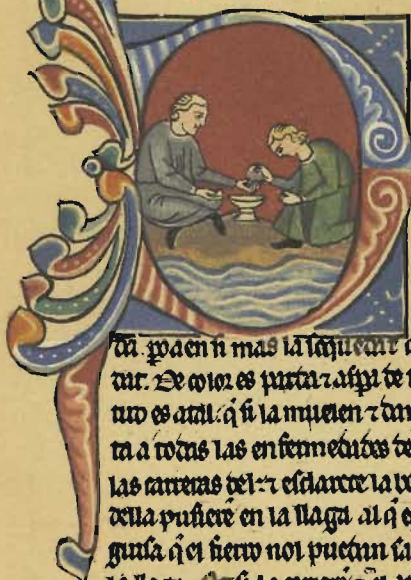 en si mas la sequedat
dat. De color es parda ⁊ aspa de
tud es atal. q̃ si la muelen ⁊ dan
ta a todas las enfermedades de
las carreras del. ⁊ esclarece la
della pusiere en la llaga al q̃ e
guisa q̃ el fierro nol puedan sa